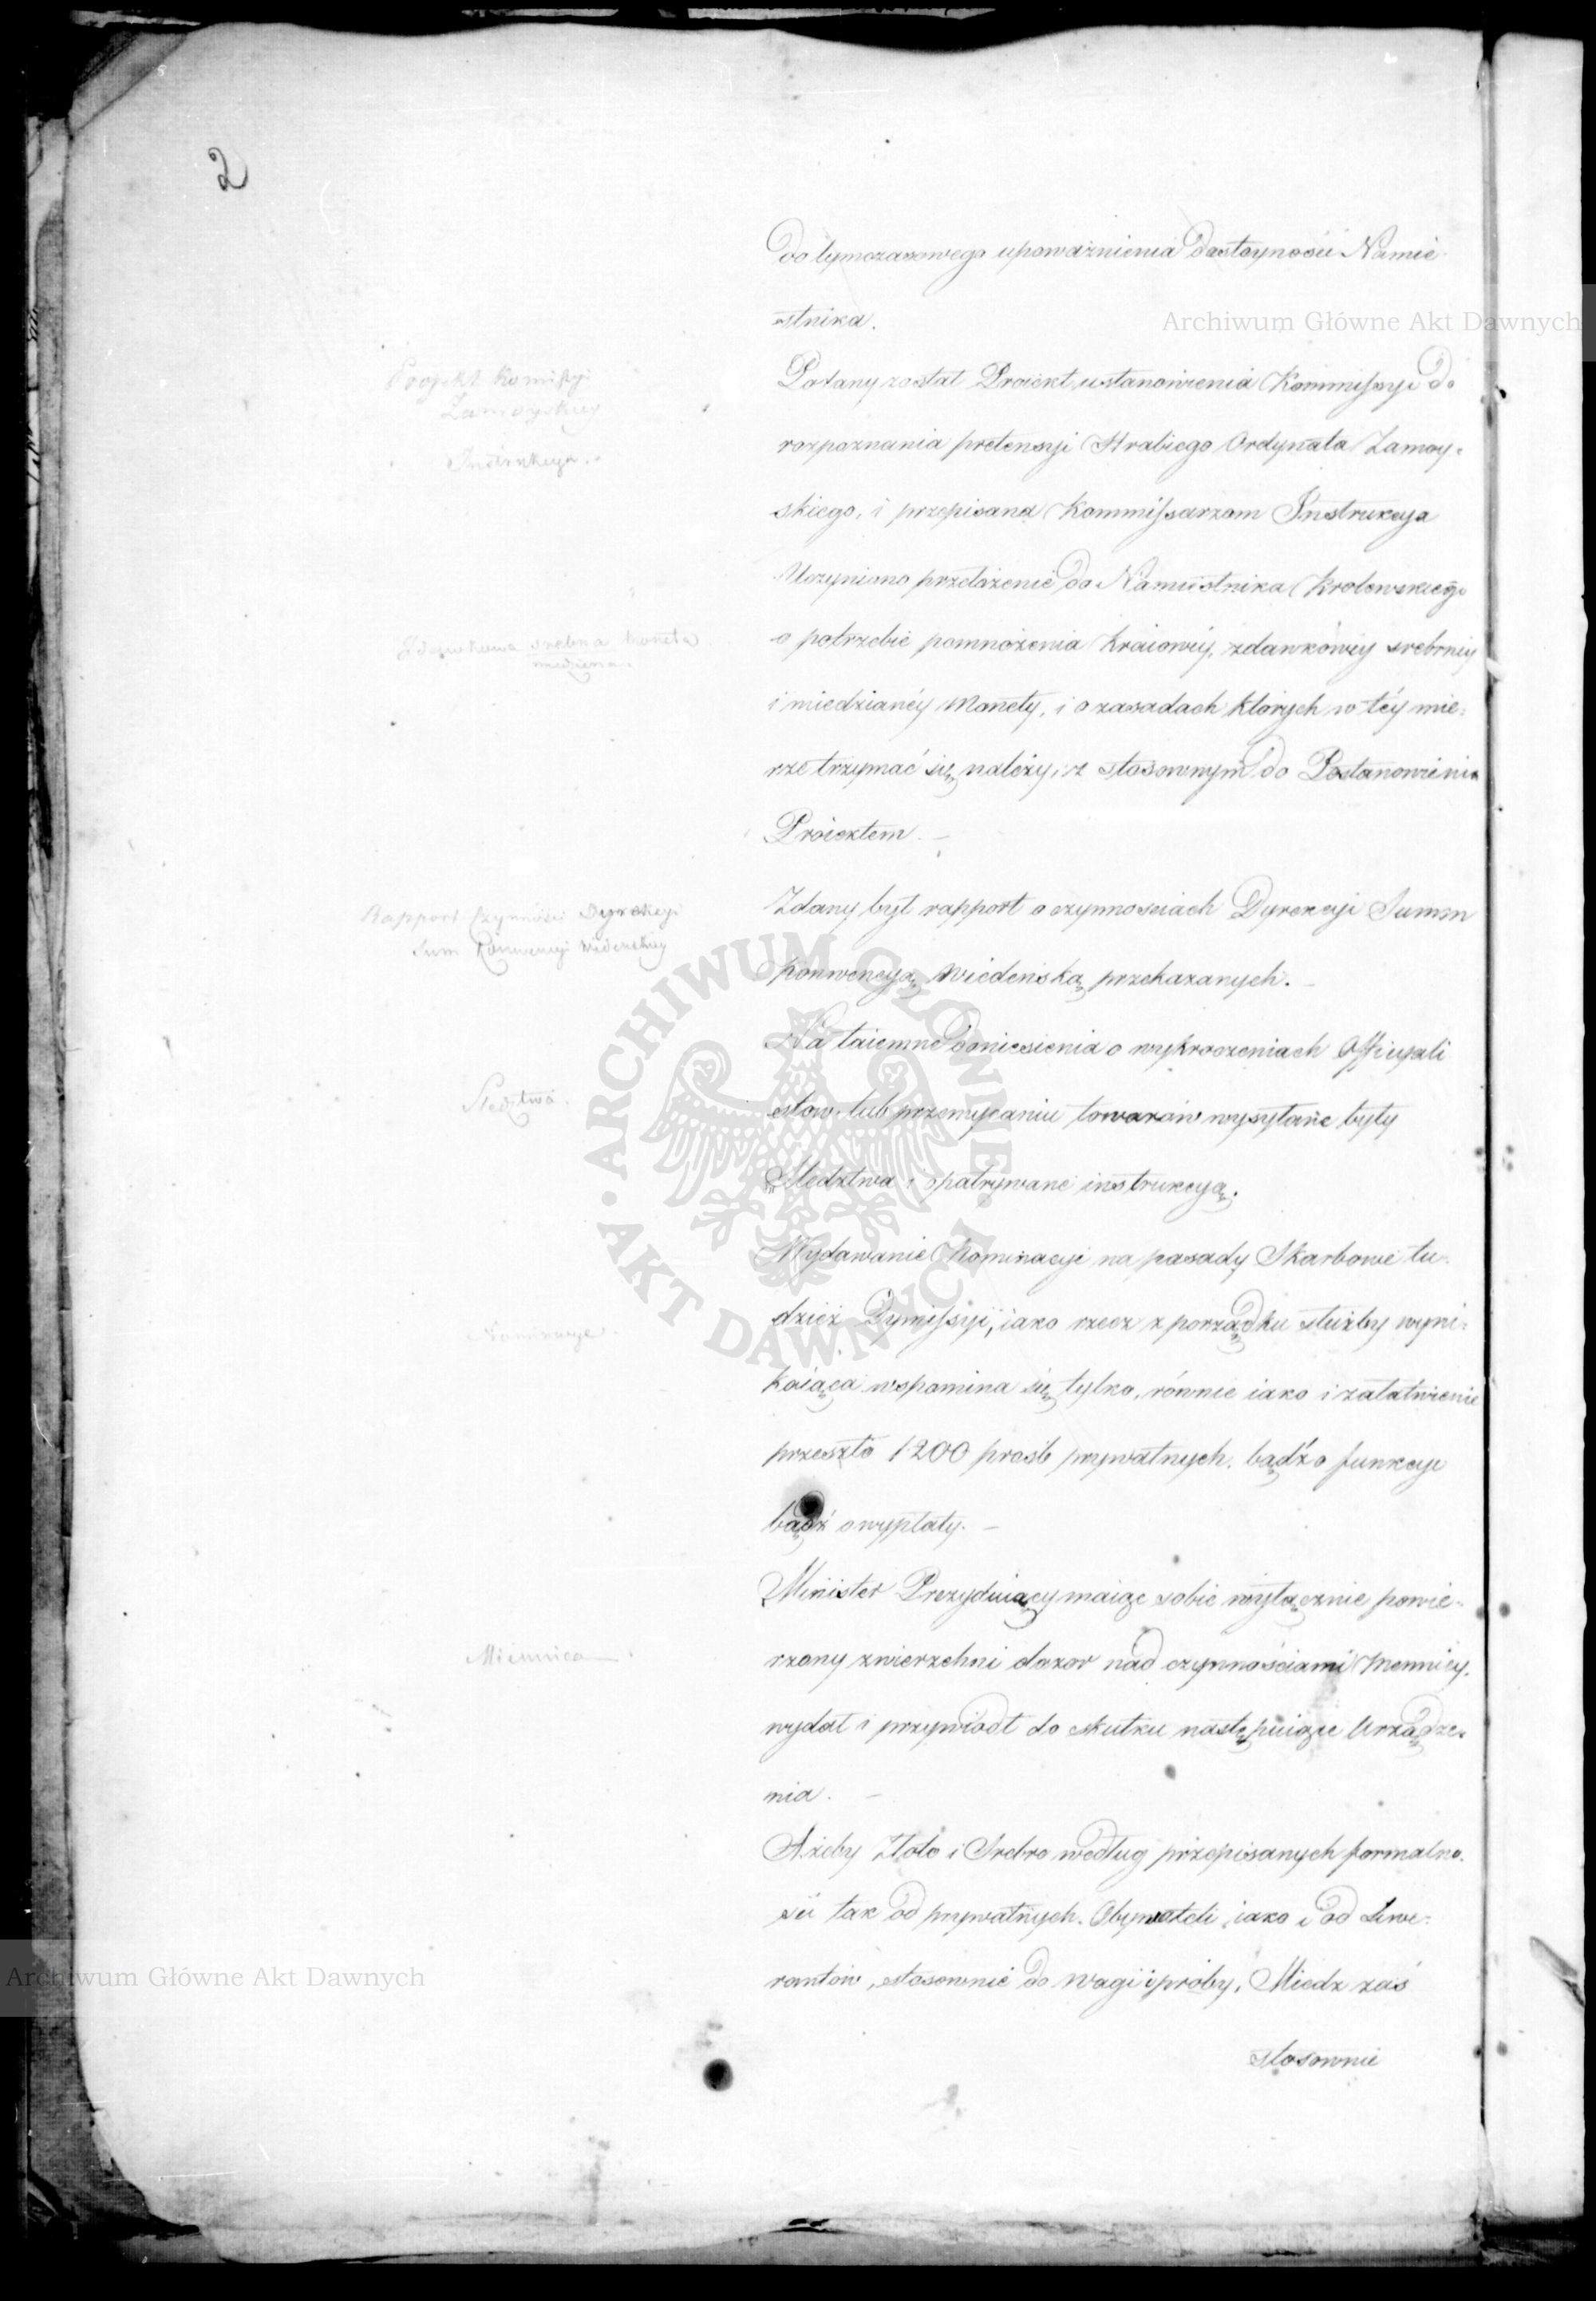 2
do tymczasowego upoważnienia Dostoyności Namie-
stnika.
Projekt Komissyi
Zamoyskiey
Instrukcya.
Podany został Proiekt ustanowienia Kommissyi do
rozpoznania pretensyi Hrabiego Ordynata Zamoy-
skiego, i przepisana Kommissarzom Instrukcya
Uczyniono przełożenie do Namiestnika Krolewskiego
Zdawkowa srebna moneta
miedziana.
o potrzebie pomnożenia Kraiowéy, zdawkowéy srebrnéy
i miedzianéy Monety, i o zasadach których w téy mie-
rze trzymać się należy, z stosownym do Postanowienia
Proiektem. —
Rapport Czynności Dyrekcyi
Sum Konwencyi Wiedeńskiey
Zdany był rapport o czynnosciach Dyrekcyi Summ
Konwencyą Wiedeńską przekazanych. —
Na taiemne doniesienia o wykroczeniach Officyali
Sledztwa.
stow lub przemycaniu towarów wysyłane były
Sledztwa i opatrywane instrukcyą.
Wydawanie Nominacyi na posady Skarbowe tu-
Nominacye.
dzież Dymissyi, iako rzecz z porządku służby wyni-
kaiąca wspomina się tylko, równie iako i załatwienie
przeszło 1200 prośb prywatnych, bądź o funkcye
bądź o wypłaty. —
Minister Prezyduiący maiąc sobie wyłącznie powie-
Mennica
rzony zwierzchni dozor nad czynnościami Mennicy,
wydał i przywiodł do skutku następuiące Urządze-
nia. —
Ażeby Złoto i Srebro według przepisanych formalno-
ści tak od prywatnych Obywateli, iako i od Liwe-
rantów, stosownie do wagi i próby, Miedz zaś
stosownie
Archiwum Główne Akt Dawnych
Archiwum Główne Akt Dawnych
ARCHIWUM GŁÓWNE • AKT DAWNYCH •